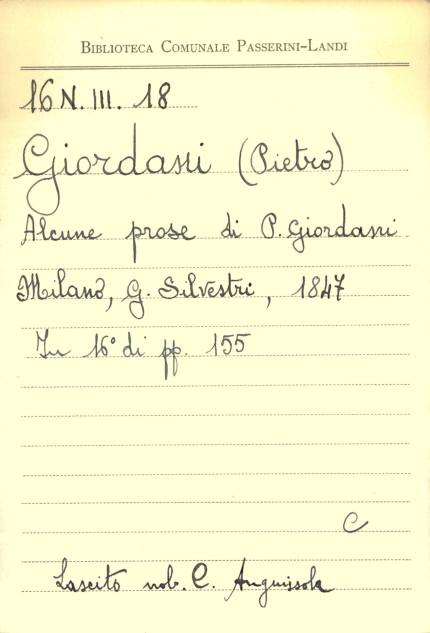 BIBLIOTECA COMUNALE PASSERINI-LANDI
16 N. III. 18
Giordani (Pietro)
Alcune prose di P. Giordani
Milano, G. Silvestri, 1847
In 16° di pp. 155
C
Lascito nob. C. Anguissola